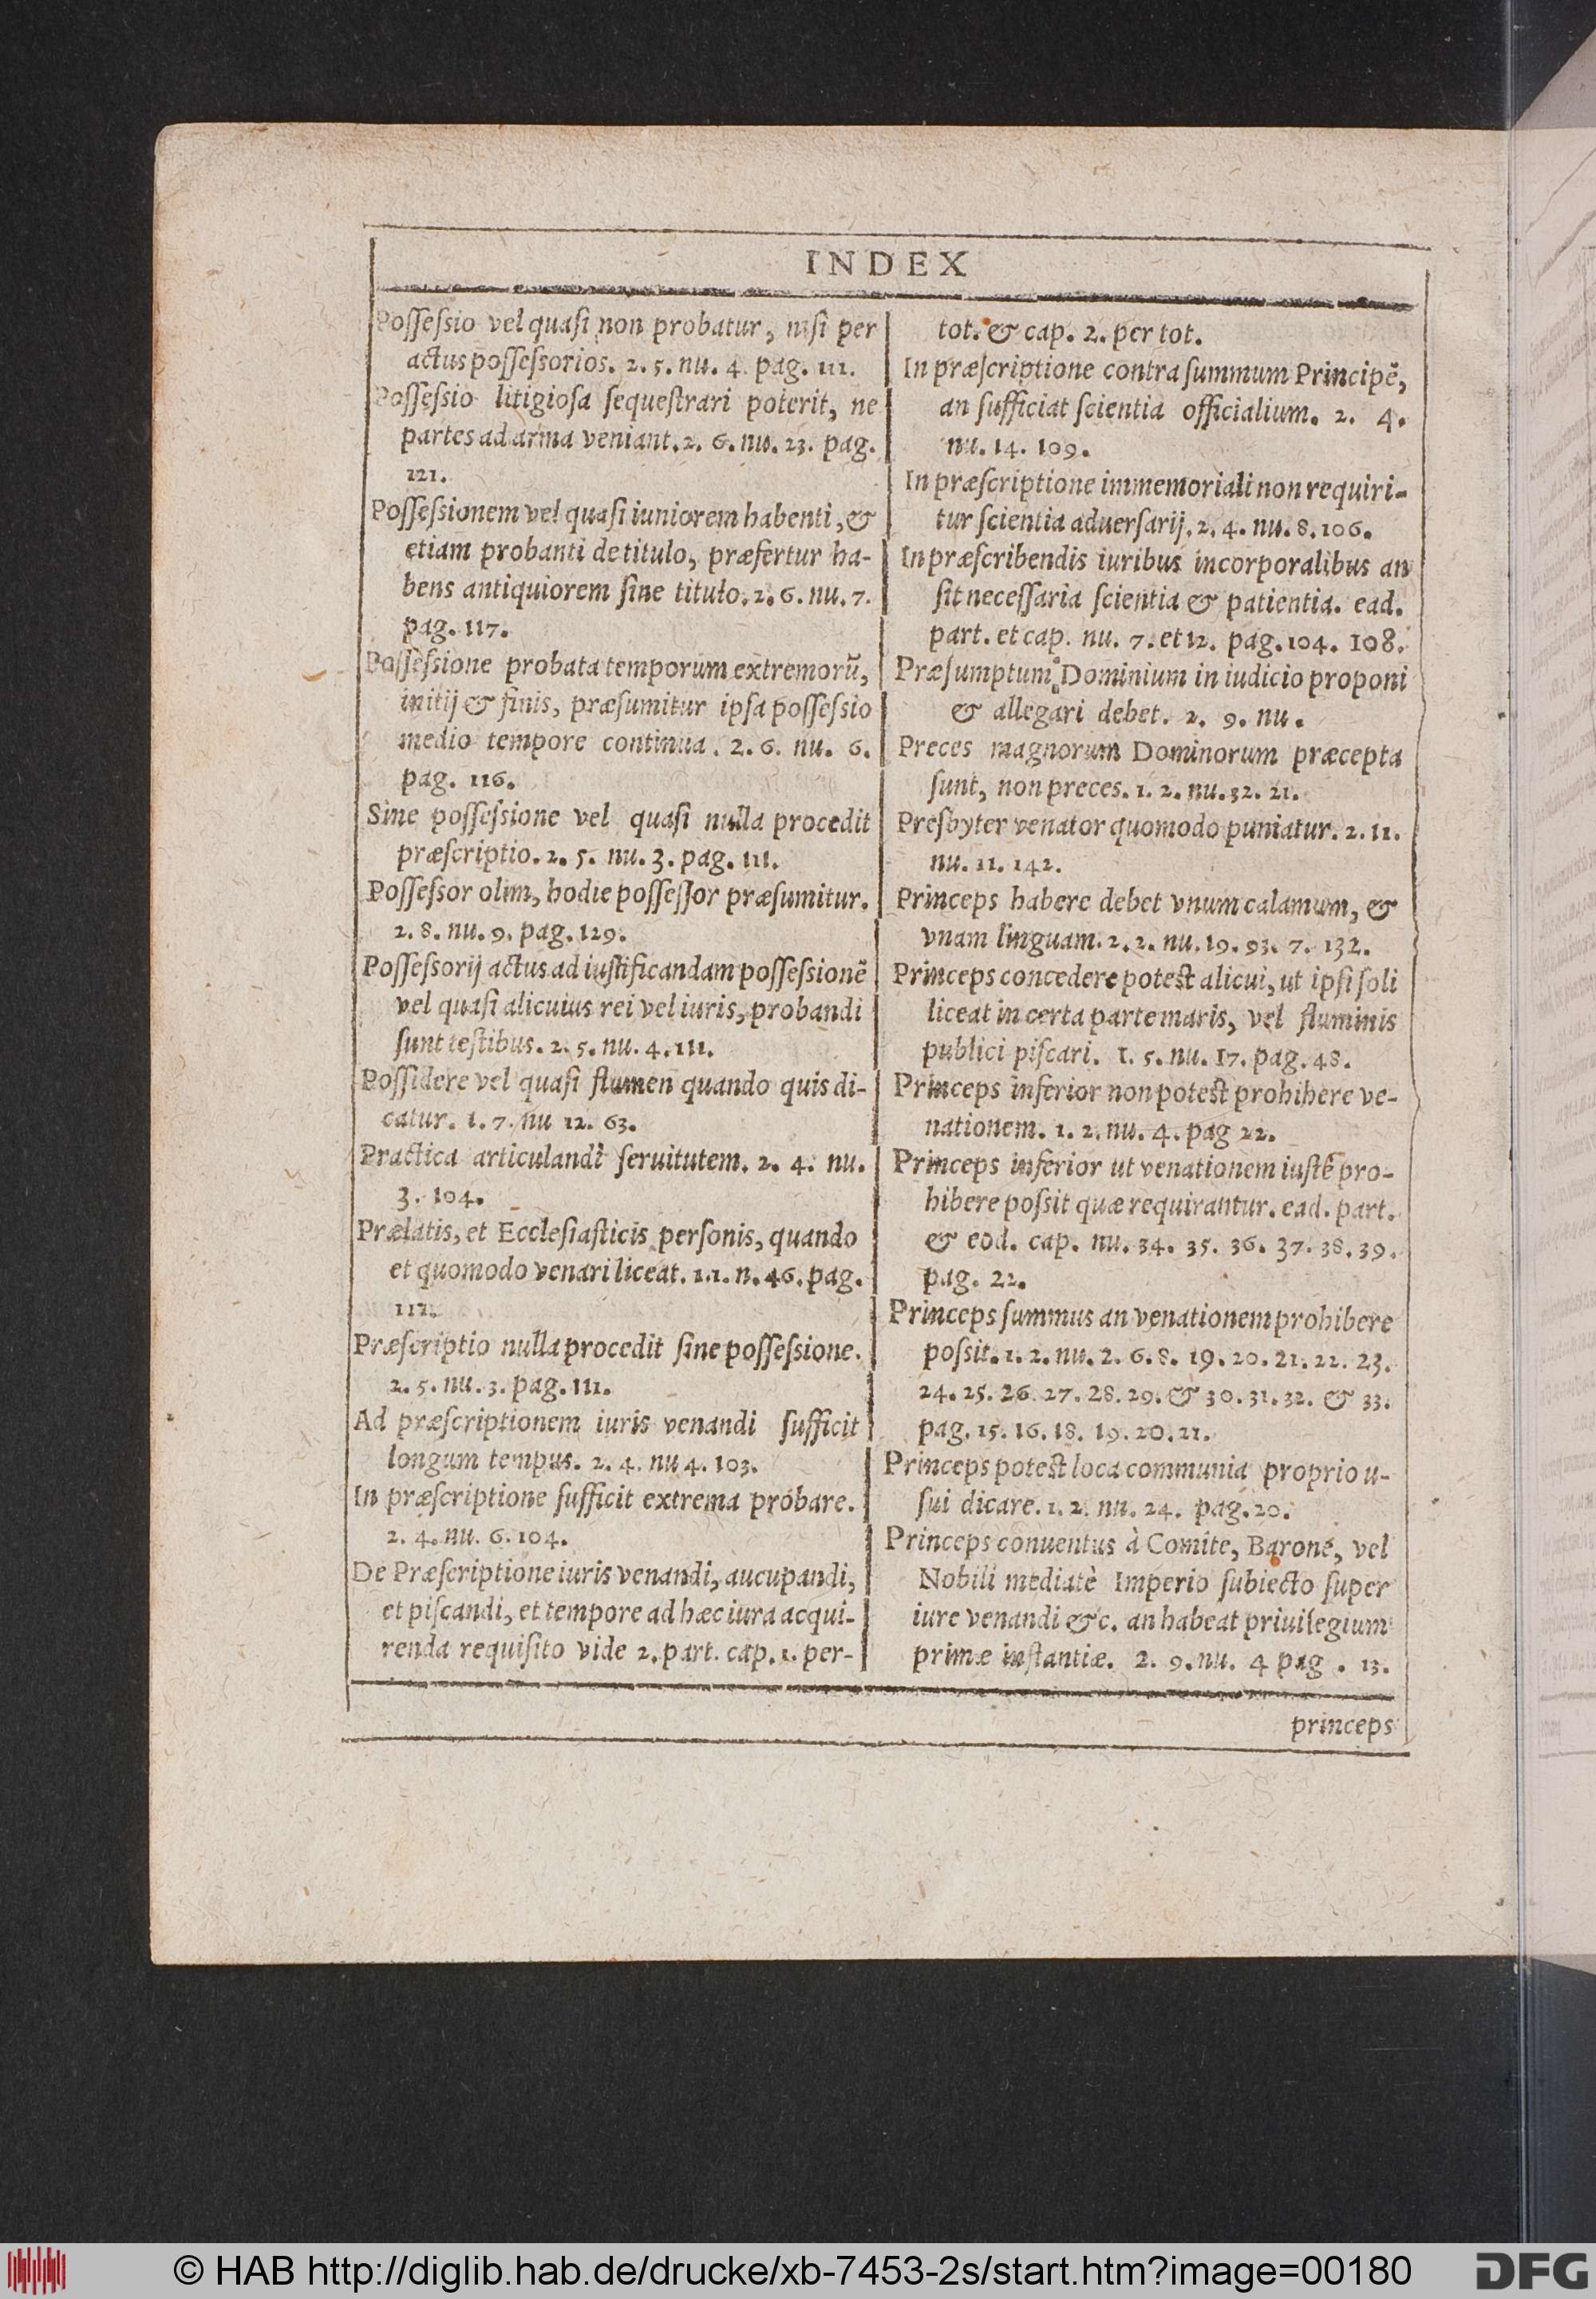 INDEX
Poſſeſsio vel quaſi non probatur, niſi per
actus poſſeſsorios. 2. 5. nu. 4. pag. 111.
Poſſeſsio litigioſa ſequeſtrari poterit, ne
partes ad arma veniant. 2. 6. nu. 23. pag.
121.
Poſſeſsionem vel quaſi iuniorem habenti, &
etiam probanti de titulo, præfertur ha-
bens antiquiorem ſine titulo. 2. 6. nu. 7.
pag. 117.
Poſſeſsione probata temporum extremorũ,
initij & finis, præſumitur ipſa poſſeſsio
medio tempore continua. 2. 6. nu. 6.
pag. 116.
Sine poſſeſsione vel quaſi nulla procedit
præſcriptio. 2. 5. nu. 3. pag. 111.
Poſſeſsor olim, hodie poſſeſſor præſumitur.
2. 8. nu. 9. pag. 129.
Poſſeſsorij actus ad iuſtificandam poſſeſsionẽ
vel quaſi alicuius rei vel iuris, probandi
ſunt teſtibus. 2. 5. nu. 4. 111.
Poſſidere vel quaſi flumen quando quis di-
catur. 1. 7. nu 12. 63.
Practica articulandi ſeruitutem. 2. 4. nu.
3. 104.
Prælatis, et Eccleſiaſticis perſonis, quando
et quomodo venari liceat. 1.1. n. 46. pag.
112.
Præſcriptio nulla procedit ſine poſſeſsione.
2. 5. nu. 3. pag. 111.
Ad præſcriptionem iuris venandi ſufficit
longum tempus. 2. 4. nu 4. 103.
In præſcriptione ſufficit extrema probare.
2. 4. nu. 6. 104.
De Præſcriptione iuris venandi, aucupandi,
et piſcandi, et tempore ad hæc iura acqui-
renda requiſito vide 2. part. cap. 1. per-
tot. & cap. 2. per tot.
In præſcriptione contra ſummum Principẽ,
an ſufficiat ſcientia officialium. 2. 4.
nu. 14. 109.
In præſcriptione immemoriali non requiri-
tur ſcientia aduerſarij. 2. 4. nu. 8. 106.
In præſcribendis iuribus incorporalibus an
ſit neceſſaria ſcientia & patientia. ead.
part. et cap. nu. 7. et 12. pag. 104. 108.
Præſumptum Dominium in iudicio proponi
& allegari debet. 2. 9. nu.
Preces magnorum Dominorum præcepta
ſunt, non preces. 1. 2. nu. 32. 21.
Preſbyter venator quomodo puniatur. 2. 11.
nu. 11. 142.
Princeps habere debet vnum calamum, &
vnam linguam. 2. 2. nu. 19. 93. 7. 132.
Princeps concedere poteſt alicui, ut ipſi ſoli
liceat in certa parte maris, vel fluminis
publici piſcari. 1. 5. nu. 17. pag. 48.
Princeps inferior non poteſt prohibere ve-
nationem. 1. 2. nu. 4. pag 22.
Princeps inferior ut venationem iuſtè pro-
hibere poſsit quæ requirantur. ead. part.
& eod. cap. nu. 34. 35. 36. 37. 38. 39.
pag. 22.
Princeps ſummus an venationem prohibere
poſsit. 1. 2. nu. 2. 6. 8. 19. 20. 21. 22. 23.
24. 25. 26. 27. 28. 29. & 30. 31. 32. & 33.
pag. 15. 16. 18. 19. 20. 21.
Princeps poteſt loca communia proprio u-
ſui dicare. 1. 2. nu. 24. pag. 20.
Princeps conuentus à Comite, Barone, vel
Nobili mediatè Imperio ſubiecto ſuper
iure venandi &c. an habeat priuilegium
primæ inſtantiæ. 2. 9. nu. 4 pag. 13.
princeps
© HAB http://diglib.hab.de/drucke/xb-7453-2s/start.htm?image=00180
DFG